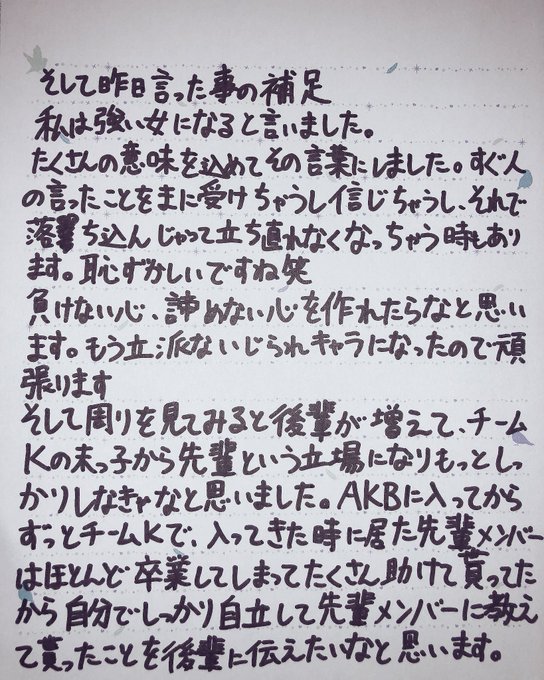 そして昨日言った事の補足
私は強い女になると言いました。
たくさんの意味を込めてその言葉にしました。すぐ人
の言ったことをまに受けちゃうし信じちゃうし、それで
落ち込んじゃって立ち直れなくなっちゃう時もあり
ます。恥ずかしいですね笑
負けない心、諦めない心を作れたらなと思い
ます。もう立派ないじられキャラになったので頑
張ります
そして周りを見てみると後輩が増えて、チーム
Kの末っ子から先輩という立場になりもっとしっ
かりしなきゃなと思いました。AKBに入ってから
ずっとチームKで、入ってきた時に居た先輩メンバー
はほとんど卒業してしまってたくさん助けて貰ってた
から自分でしっかり自立して先輩メンバーに教え
て貰ったことを後輩に伝えたいなと思います。